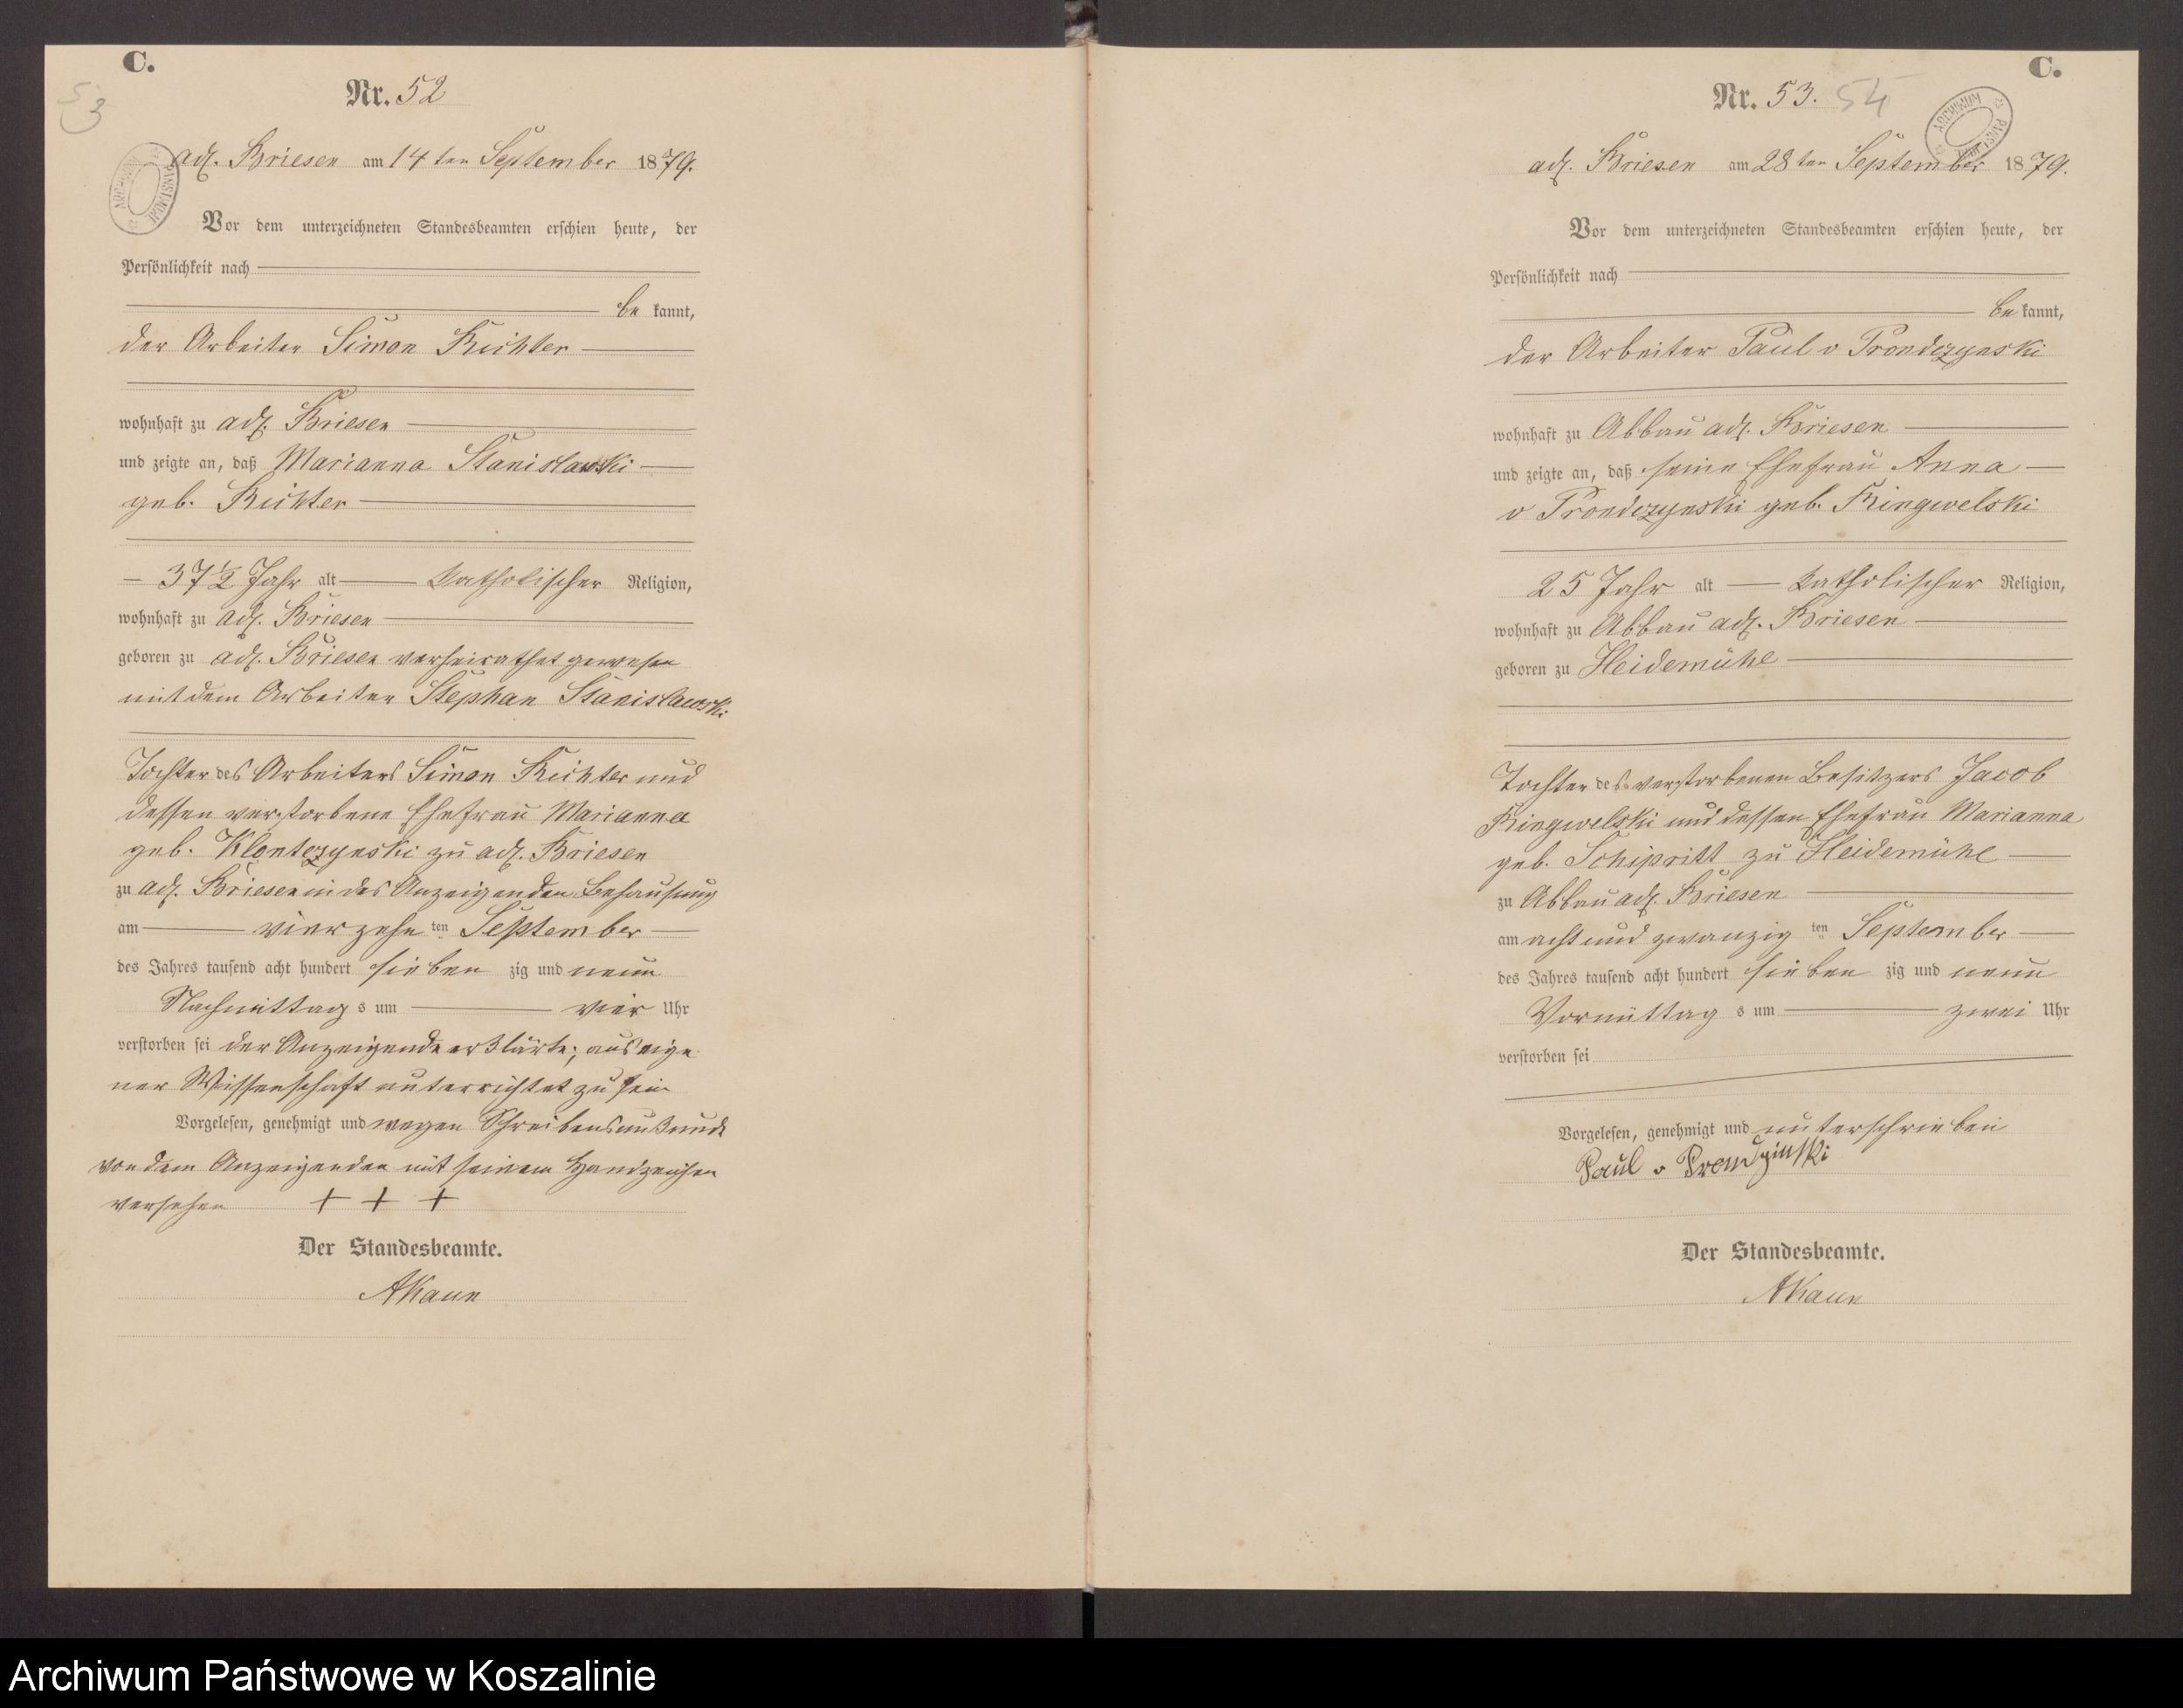 C.
53
Nr. 52
ARCHIWUM PAŃSTWOWE
adl. Briesen am 14 ten September 1879.
Vor dem unterzeichneten Standesbeamten erschien heute, der
Persönlichkeit nach
be kannt,
der Arbeiter Simon Richter
wohnhaft zu adl. Briesen
und zeigte an, daß Marianna Stanislawski
geb. Richter
37 1/2 Jahr alt katholischer Religion,
wohnhaft zu adl. Briesen
geboren zu adl. Briesen verheirathet gewesen
mit dem Arbeiter Stephan Stanislawski
Tochter des Arbeiters Simon Richter und
dessen verstorbene Ehefrau Marianna
geb. Klontczynski zu adl. Briesen
zu adl. Briesen in des Anzeigenden Behausung
am vierzehn ten September
des Jahres tausend acht hundert sieben zig und neun
Nachmittag s um vier Uhr
verstorben sei der Anzeigende erklärte; aus eige
ner Wissenschaft unterrichtet zu sein
Vorgelesen, genehmigt und wegen Schreibensunkunde
von dem Anzeigenden mit seinem Handzeichen
versehen + + +
Der Standesbeamte.
AKaun
C.
Nr. 53. 54
ARCHIWUM PAŃSTWOWE
adl. Briesen am 28 ten September 1879.
Vor dem unterzeichneten Standesbeamten erschien heute, der
Persönlichkeit nach
be kannt,
der Arbeiter Paul v Prondczynski
wohnhaft zu Abbau adl. Briesen
und zeigte an, daß seine Ehefrau Anna
v Prondczynski geb. Ringwelski
25 Jahr alt katholischer Religion,
wohnhaft zu Abbau adl. Briesen
geboren zu Heidemühe
Tochter des verstorbenen Besitzers Jacob
Ringwelski und dessen Ehefrau Marianna
geb. Schipritt zu Heidemühe
zu Abbau adl. Briesen
am acht und zwanzig ten September
des Jahres tausend acht hundert sieben zig und neun
Vormittag s um zwei Uhr
verstorben sei
Vorgelesen, genehmigt und unterschrieben
Paul v Prondzinski
Der Standesbeamte.
AKaun
Archiwum Państwowe w Koszalinie